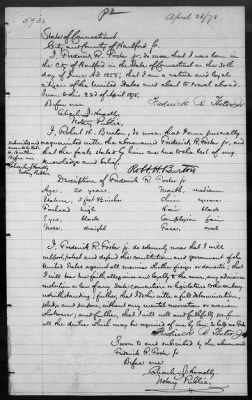 5932
April 26/78
State of Connecticut
City and County of Hartford ss.
I, Frederick R. Foster Jr, do swear that I was born in
the City of Hartford in the State of Connecticut on the 20th
day of June A.D. 1858; that I am a native and loyal
citizen of the United States and about to travel abroad.
Sworn to this 23d April 1878.
Before me
Charles J.
Notary Public.
I, Robert H. Burton, do swear that I am personally
acquainted with the above named Frederick R. Foster Jr, and
that the facts stated by him are true to the best of my
knowledge and belief.
Robt H Burton
Description of Frederick R. Foster Jr
Age, 20 years. Mouth, medium
Stature, 5 feet inches Chin,
Forehead high Hair black
Eyes, black Complexion fair
Nose, straight Face, oval
I, Frederick R. Foster Jr do solemnly swear that I will
support, protect and defend the constitution and government of the
United States against all enemies whether foreign or domestic; that
I will bear true faith, allegiance and loyalty to the same, any ordinance
resolution or law of any State convention or legislature to the contrary
notwithstanding; further, that I do this with a full determination,
pledge and purpose, without any mental reservation or evasion
whatsoever; and further, that I will well and faithfully perform
all the duties which may be required of me by law: So help me God.
Sworn to and subscribed by the above named
Frederick R. Foster Jr
Before me
Charles J.
Notary Public.